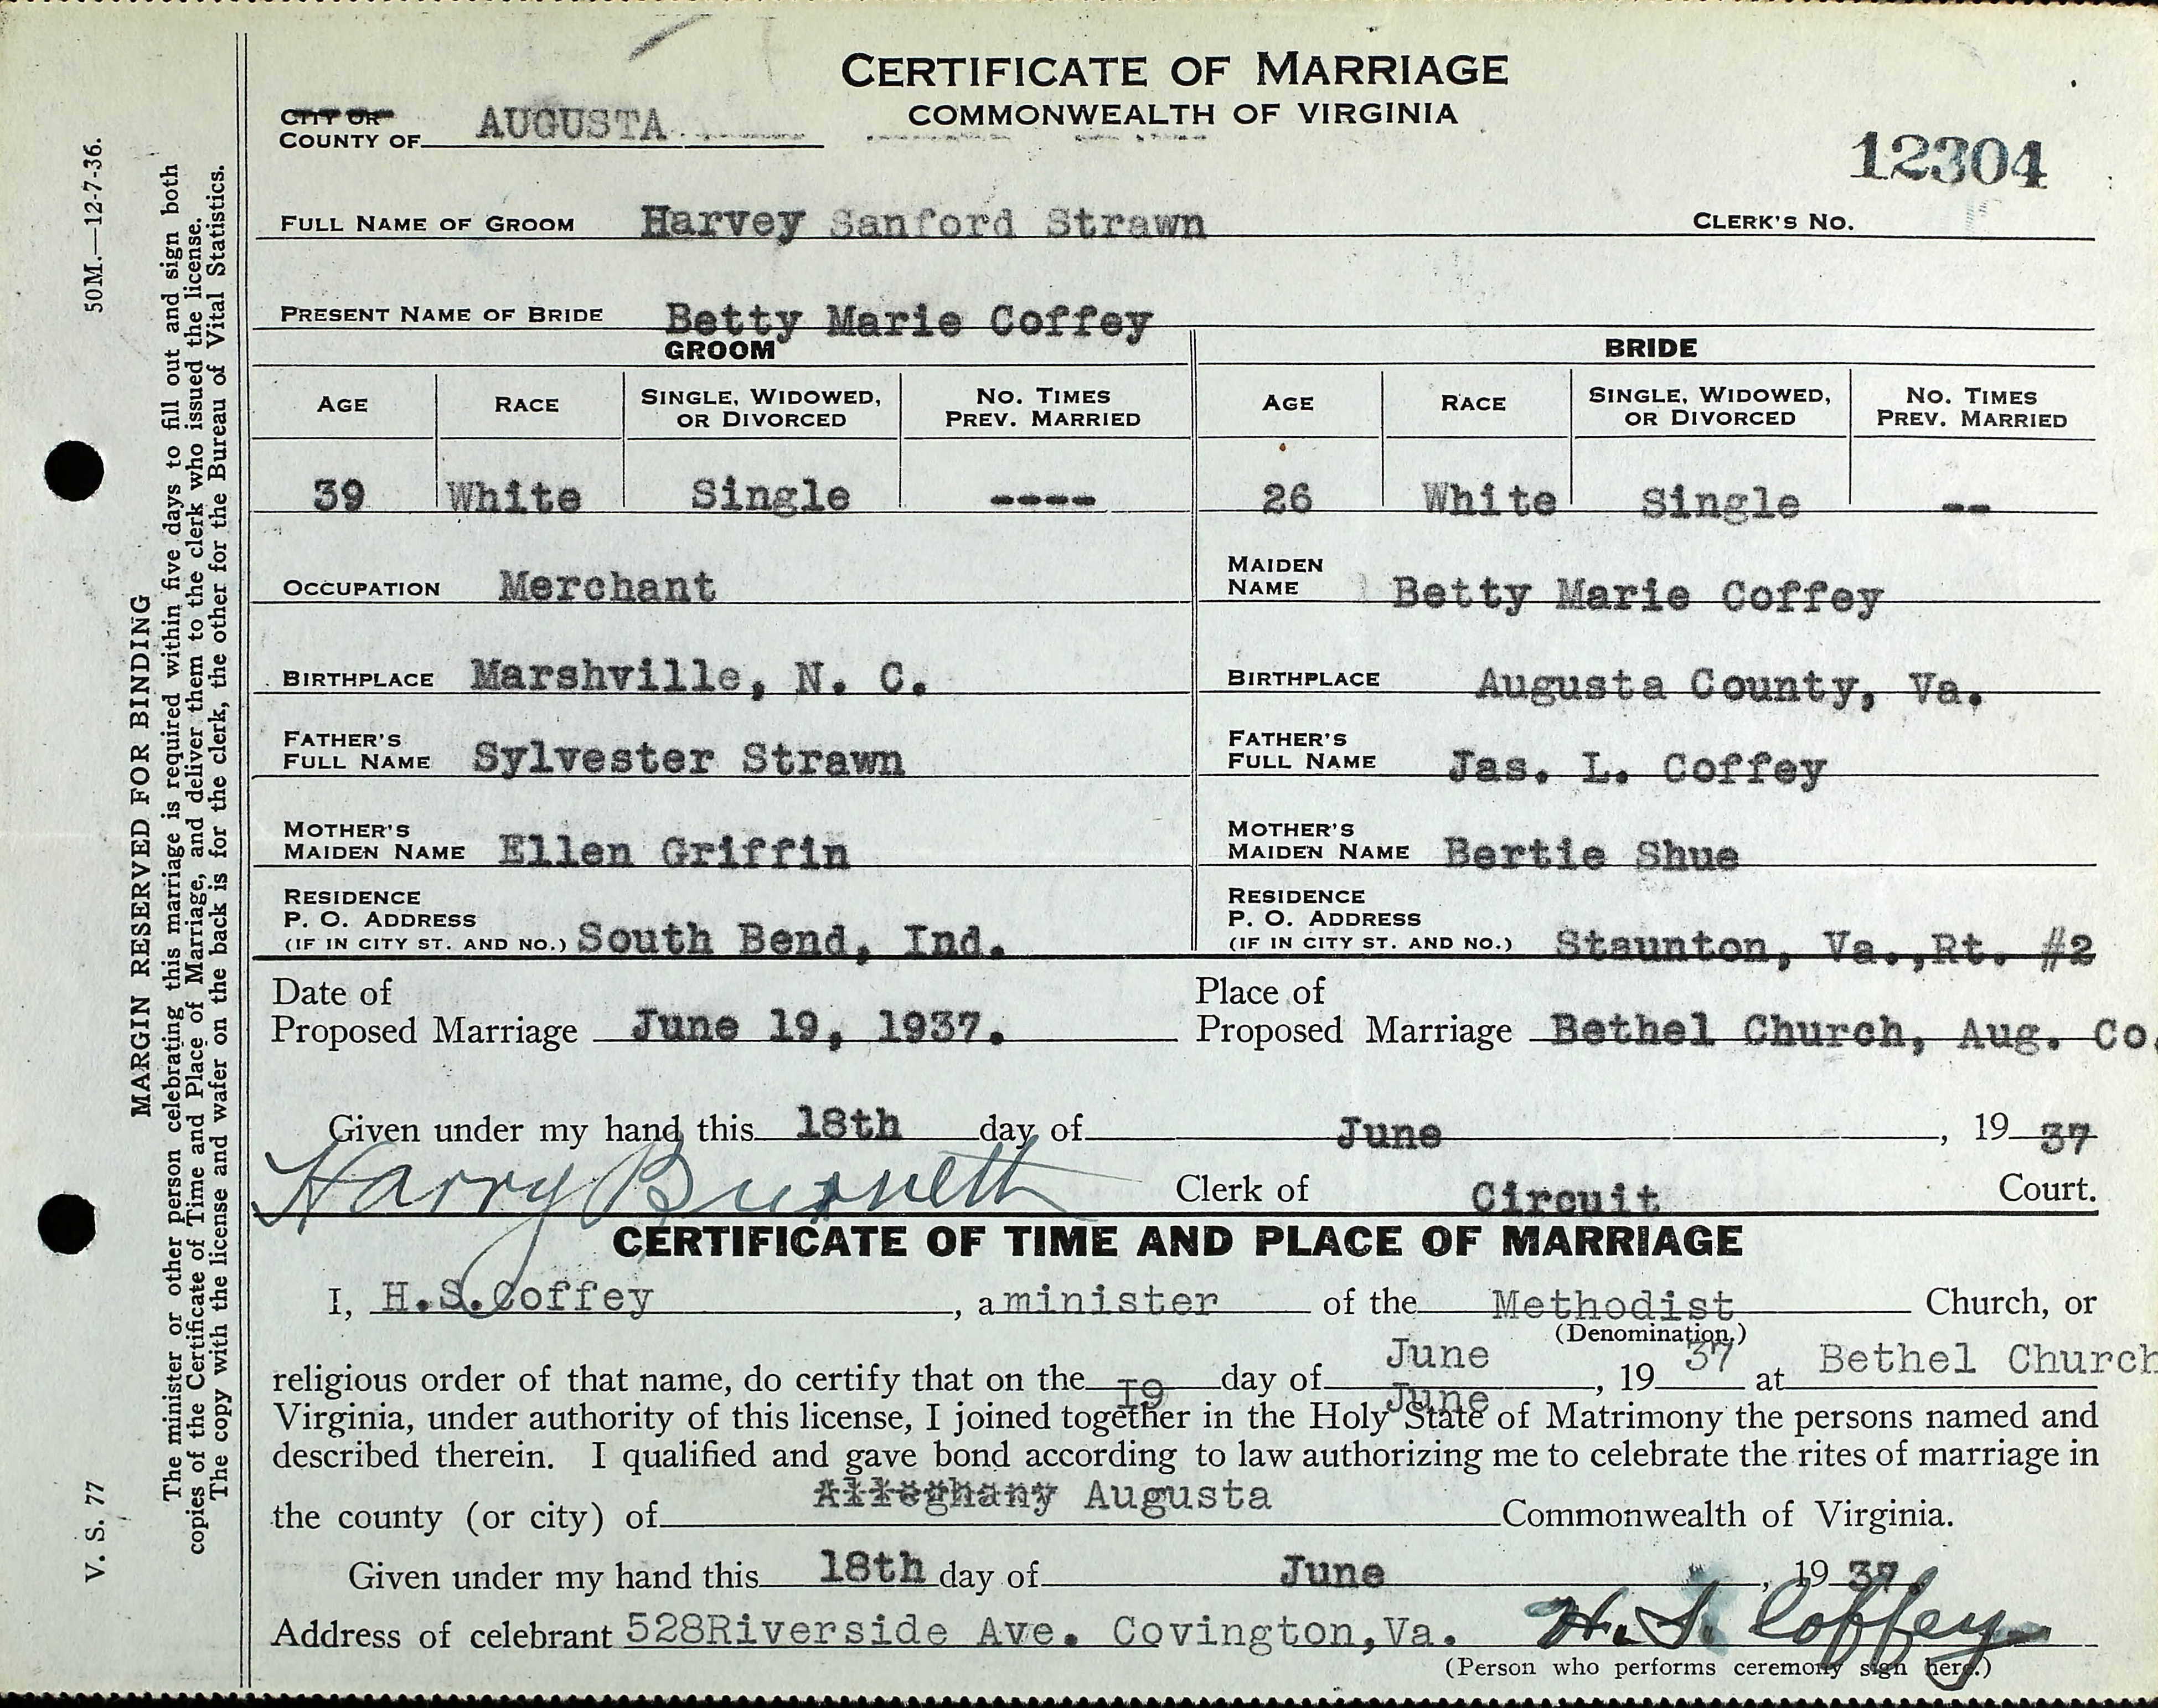 CERTIFICATE OF MARRIAGE
COMMONWEALTH OF VIRGINIA
CITY OR
COUNTY OF AUGUSTA
12304
FULL NAME OF GROOM Harvey Sanford Strawn CLERK'S NO.
PRESENT NAME OF BRIDE Betty Marie Coffey
GROOM BRIDE
AGE RACE SINGLE, WIDOWED, OR DIVORCED NO. TIMES PREV. MARRIED AGE RACE SINGLE, WIDOWED, OR DIVORCED NO. TIMES PREV. MARRIED
39 White Single ---- 26 White Single --
OCCUPATION Merchant MAIDEN NAME Betty Marie Coffey
BIRTHPLACE Marshville, N. C. BIRTHPLACE Augusta County, Va.
FATHER'S FULL NAME Sylvester Strawn FATHER'S FULL NAME Jas. L. Coffey
MOTHER'S MAIDEN NAME Ellen Griffin MOTHER'S MAIDEN NAME Bertie Shue
RESIDENCE P. O. ADDRESS (IF IN CITY ST. AND NO.) South Bend, Ind. RESIDENCE P. O. ADDRESS (IF IN CITY ST. AND NO.) Staunton, Va.,Rt. #2
Date of Proposed Marriage June 19, 1937. Place of Proposed Marriage Bethel Church, Aug. Co.
Given under my hand this 18th day of June, 19 37
Harry Burnett Clerk of Circuit Court.
CERTIFICATE OF TIME AND PLACE OF MARRIAGE
I, H.S.Coffey, a minister of the Methodist Church, or
(Denomination.)
religious order of that name, do certify that on the I9 day of June June, 19 37 at Bethel Church
Virginia, under authority of this license, I joined together in the Holy State of Matrimony the persons named and
described therein. I qualified and gave bond according to law authorizing me to celebrate the rites of marriage in
the county (or city) of Alleghany Augusta Commonwealth of Virginia.
Given under my hand this 18th day of June, 19 37.
Address of celebrant 528Riverside Ave. Covington,Va. H. S. Coffey
(Person who performs ceremony sign here.)
50M.—12-7-36.
V. S. 77
MARGIN RESERVED FOR BINDING
The minister or other person celebrating this marriage is required within five days to fill out and sign both
copies of the Certificate of Time and Place of Marriage, and deliver them to the clerk who issued the license.
The copy with the license and wafer on the back is for the clerk, the other for the Bureau of Vital Statistics.